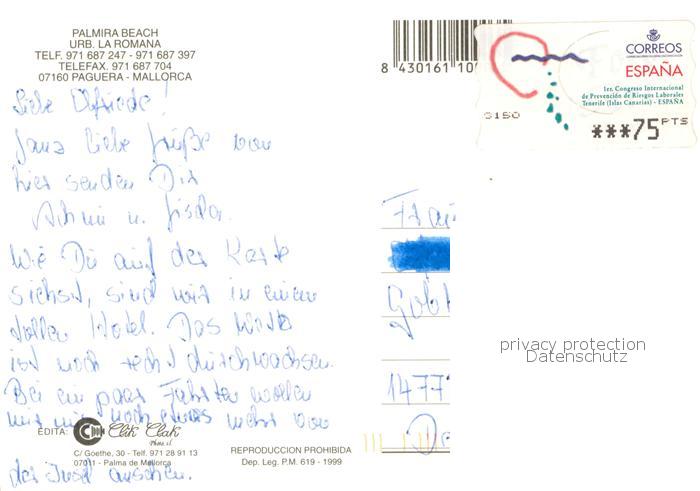 PALMIRA BEACH
URB. LA ROMANA
TELF. 971 687 247 - 971 687 397
TELEFAX. 971 687 704
07160 PAGUERA - MALLORCA
Liebe Elfriede!
Ganz liebe Grüße von
hier senden Dir
Achim u. Gisela.
Wie Du auf der Karte
siehst, sind wir in einem
tollen Hotel. Das Wetter
ist noch recht durchwachsen.
Bei ein paar Fahrten wollen
wir noch etwas mehr von
der Insel anschauen.
EDITA:
Clik Clak
Photo, sl.
C/ Goethe, 30 - Telf. 971 28 91 13
07011 - Palma de Mallorca
REPRODUCCION PROHIBIDA
Dep. Leg. P.M. 619 - 1999
8 430161 10
CORREOS
ESPAÑA
1er. Congreso Internacional
de Prevención de Riesgos Laborales
Tenerife (Islas Canarias) - ESPAÑA
G150
***75 PTS
1477
privacy protection
Datenschutz